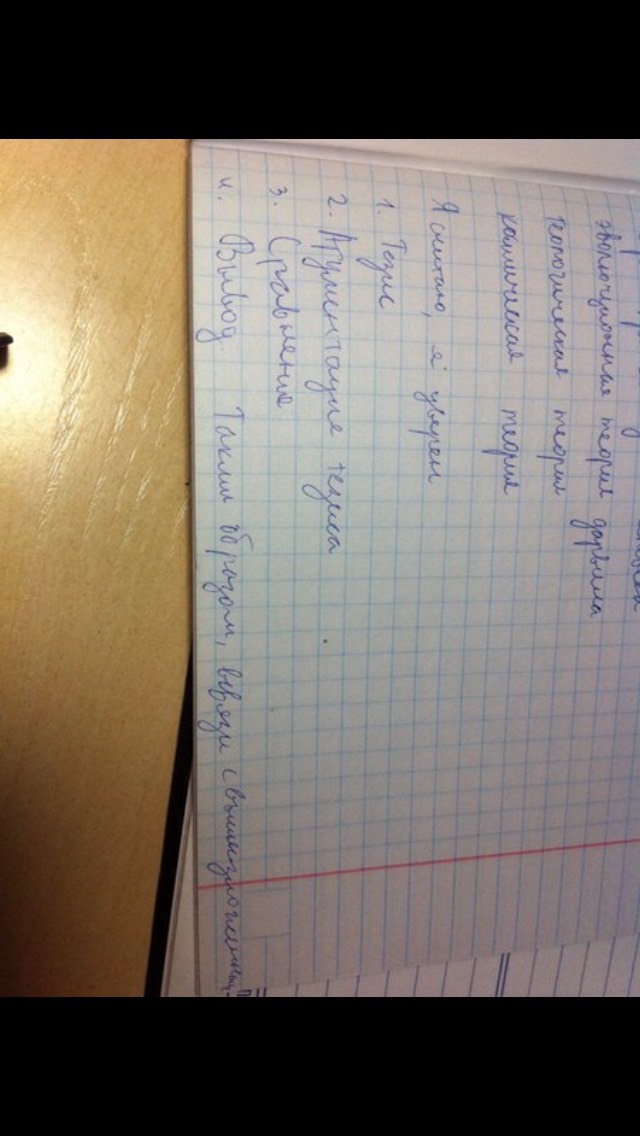 эволюционная теория дарвина
теологическая теория
космическая теория
Я считаю, я уверен
1. Тезис
2. Аргументация тезиса
3. Сравнение
4. Вывод. Таким образом, всвязи с вышеизложенным